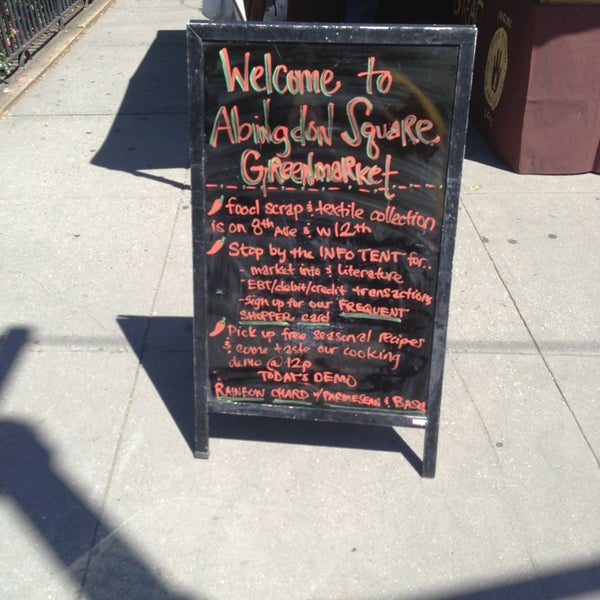 Welcome to
Abingdon Square
Greenmarket
food scrap & textile collection
is on 8th Ave & W 12th
Stop by the INFO TENT for..
- market info & literature
- EBT/debit/credit transactions
- sign up for our FREQUENT
SHOPPER card
Pick up free seasonal recipes
& come taste our cooking
demo @ 12p
TODAY'S DEMO
RAINBOW CHARD w/PARMESEAN & BASIL